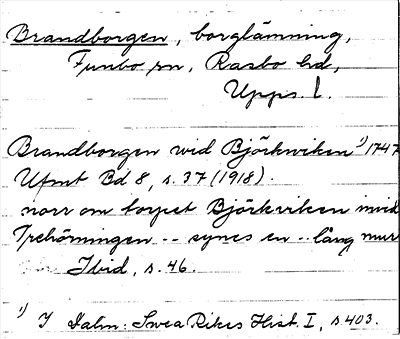 Brandborgen, borglämning,
Funbo sn, Rasbo hd,
Upps. l.
Brandborgen wid Björkwiken¹⁾ 1747
Ufmt Bd 8, s. 37 (1918).
norr om torpet Björkviken invid
Trehörningen -- synes en -- lång mur
Ibid, s. 46.
¹⁾ I Dalin: Svea Rikes Hist. I, s. 403.